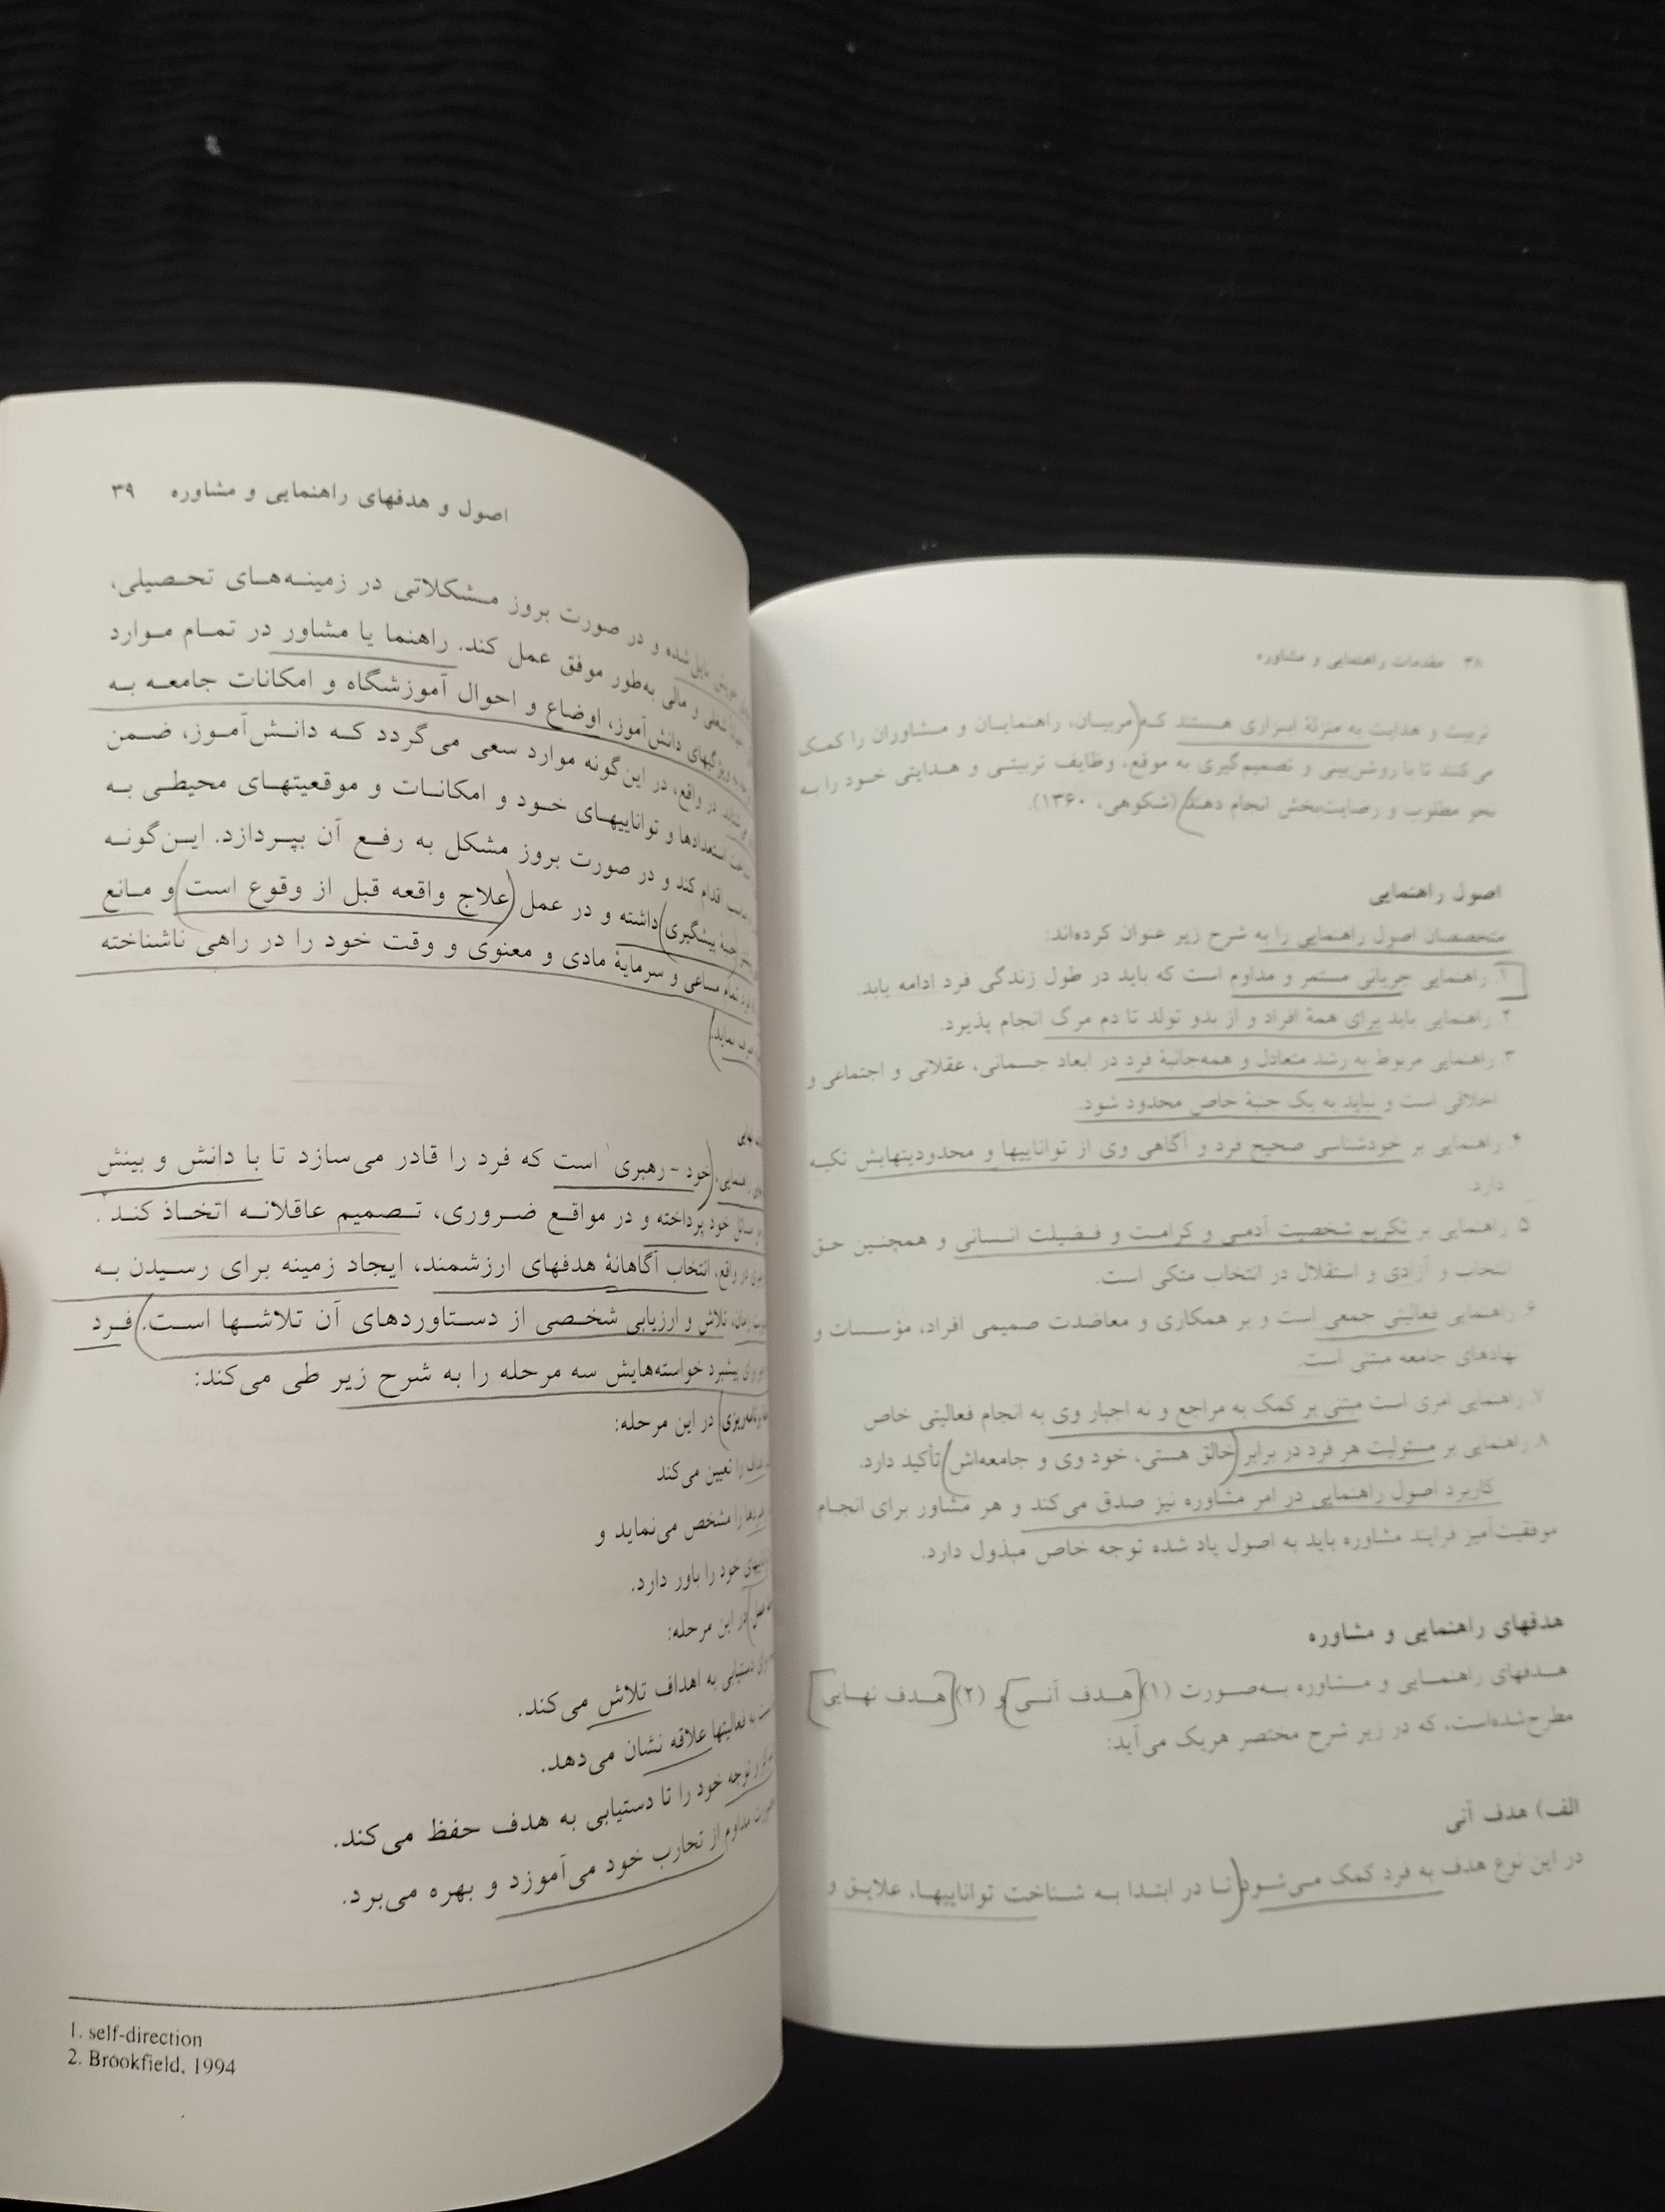 ۳۸ مقدمات راهنمایی و مشاوره
تربیت و هدایت به منزلهٔ ابزاری هستند که مربیان، راهنمایان و مشاوران را کمک
می‌کنند تا با روشن‌بینی و تصمیم‌گیری به موقع، وظایف تربیتی و هدایتی خود را به
نحو مطلوب و رضایت‌بخش انجام دهند (شکوهی، ۱۳۶۰).
اصول راهنمایی
متخصصان اصول راهنمایی را به شرح زیر عنوان کرده‌اند:
۱. راهنمایی جریانی مستمر و مداوم است که باید در طول زندگی فرد ادامه یابد.
۲. راهنمایی باید برای همهٔ افراد و از بدو تولد تا دم مرگ انجام پذیرد.
۳. راهنمایی مربوط به رشد متعادل و همه‌جانبهٔ فرد در ابعاد جسمانی، عقلانی و اجتماعی و
اخلاقی است و نباید به یک جنبهٔ خاص محدود شود.
۴. راهنمایی بر خودشناسی صحیح فرد و آگاهی وی از تواناییها و محدودیتهایش تکیه
دارد.
۵. راهنمایی بر تکریم شخصیت آدمی و کرامت و فضیلت انسانی و همچنین حق
انتخاب و آزادی و استقلال در انتخاب متکی است.
۶. راهنمایی فعالیتی جمعی است و بر همکاری و معاضدت صمیمی افراد، مؤسسات و
نهادهای جامعه مبتنی است.
۷. راهنمایی امری است مبتنی بر کمک به مراجع و نه اجبار وی به انجام فعالیتی خاص
۸. راهنمایی بر مسئولیت هر فرد در برابر خالق هستی، خود وی و جامعه‌اش تأکید دارد.
کاربرد اصول راهنمایی در امر مشاوره نیز صدق می‌کند و هر مشاور برای انجام
موفقیت‌آمیز فرایند مشاوره باید به اصول یاد شده توجه خاص مبذول دارد.
هدفهای راهنمایی و مشاوره
هدفهای راهنمایی و مشاوره به‌صورت (۱) هدف آنی و (۲) هدف نهایی
مطرح‌شده‌است، که در زیر شرح مختصر هریک می‌آید:
الف) هدف آنی
در این نوع هدف به فرد کمک می‌شود تا در ابتدا به شناخت تواناییها، علایق و
اصول و هدفهای راهنمایی و مشاوره ۳۹
نایل شده و در صورت بروز مشکلاتی در زمینه‌های تحصیلی،
شغلی و مالی به‌طور موفق عمل کند. راهنما یا مشاور در تمام موارد
به ویژگیهای دانش‌آموز، اوضاع و احوال آموزشگاه و امکانات جامعه به
در واقع، در این‌گونه موارد سعی می‌گردد که دانش‌آموز، ضمن
استعدادها و تواناییهای خود و امکانات و موقعیتهای محیطی به
اقدام کند و در صورت بروز مشکل به رفع آن بپردازد. این‌گونه
پیشگیری داشته و در عمل علاج واقعه قبل از وقوع است و مانع
تمام مساعی و سرمایهٔ مادی و معنوی و وقت خود را در راهی ناشناخته
صرف نماید.
نهایی
راهنمایی، خود - رهبری۱ است که فرد را قادر می‌سازد تا با دانش و بینش
مسائل خود پرداخته و در مواقع ضروری، تصمیم عاقلانه اتخاذ کند۲.
در واقع، انتخاب آگاهانهٔ هدفهای ارزشمند، ایجاد زمینه برای رسیدن به
تلاش و ارزیابی شخصی از دستاوردهای آن تلاشها است. فرد
برای پیشبرد خواسته‌هایش سه مرحله را به شرح زیر طی می‌کند:
برنامه‌ریزی) در این مرحله:
را تعیین می‌کند
را مشخص می‌نماید و
خود را باور دارد.
در این مرحله:
دستیابی به اهداف تلاش می‌کند.
به فعالیتها علاقه نشان می‌دهد.
و توجه خود را تا دستیابی به هدف حفظ می‌کند.
مداوم از تجارب خود می‌آموزد و بهره می‌برد.
1. self-direction
2. Brookfield, 1994